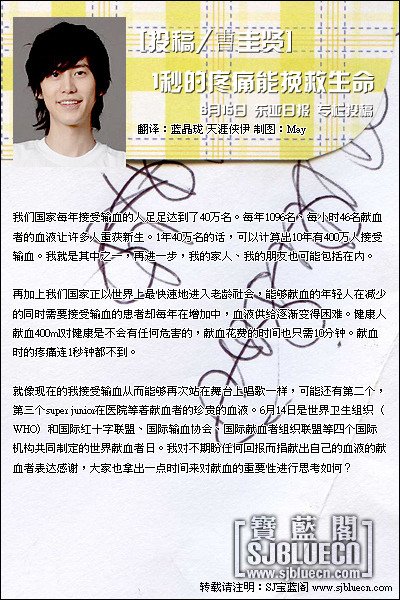 [投稿/曹圭贤]
1秒的疼痛能挽救生命
6月15日 东亚日报 专栏投稿
翻译：蓝晶珑 天涯侠伊 制图：May
我们国家每年接受输血的人足足达到了40万名。每年1096名，每小时46名献血
者的血液让许多人重获新生。1年40万名的话，可以计算出10年有400万人接受
输血。我就是其中之一，再进一步，我的家人、我的朋友也可能包括在内。
再加上我们国家正以世界上最快速地进入老龄社会，能够献血的年轻人在减少
的同时需要接受输血的患者却每年在增加中，血液供给逐渐变得困难。健康人
献血400ml对健康是不会有任何危害的，献血花费的时间也只需10分钟。献血
时的疼痛连1秒钟都不到。
就像现在的我接受输血从而能够再次站在舞台上唱歌一样，可能还有第二个，
第三个super junior在医院等著献血者的珍贵的血液。6月14日是世界卫生组织（
WHO）和国际红十字联盟、国际输血协会、国际献血者组织联盟等四个国际
机构共同制定的世界献血者日。我对不期盼任何回报而捐献出自己的血液的献
血者表达感谢，大家也拿出一点时间来对献血的重要性进行思考如何？
[寶藍閣]
SJBLUECN
www.sjbluecn.com
转载请注明：SJ宝蓝阁 www.sjbluecn.com